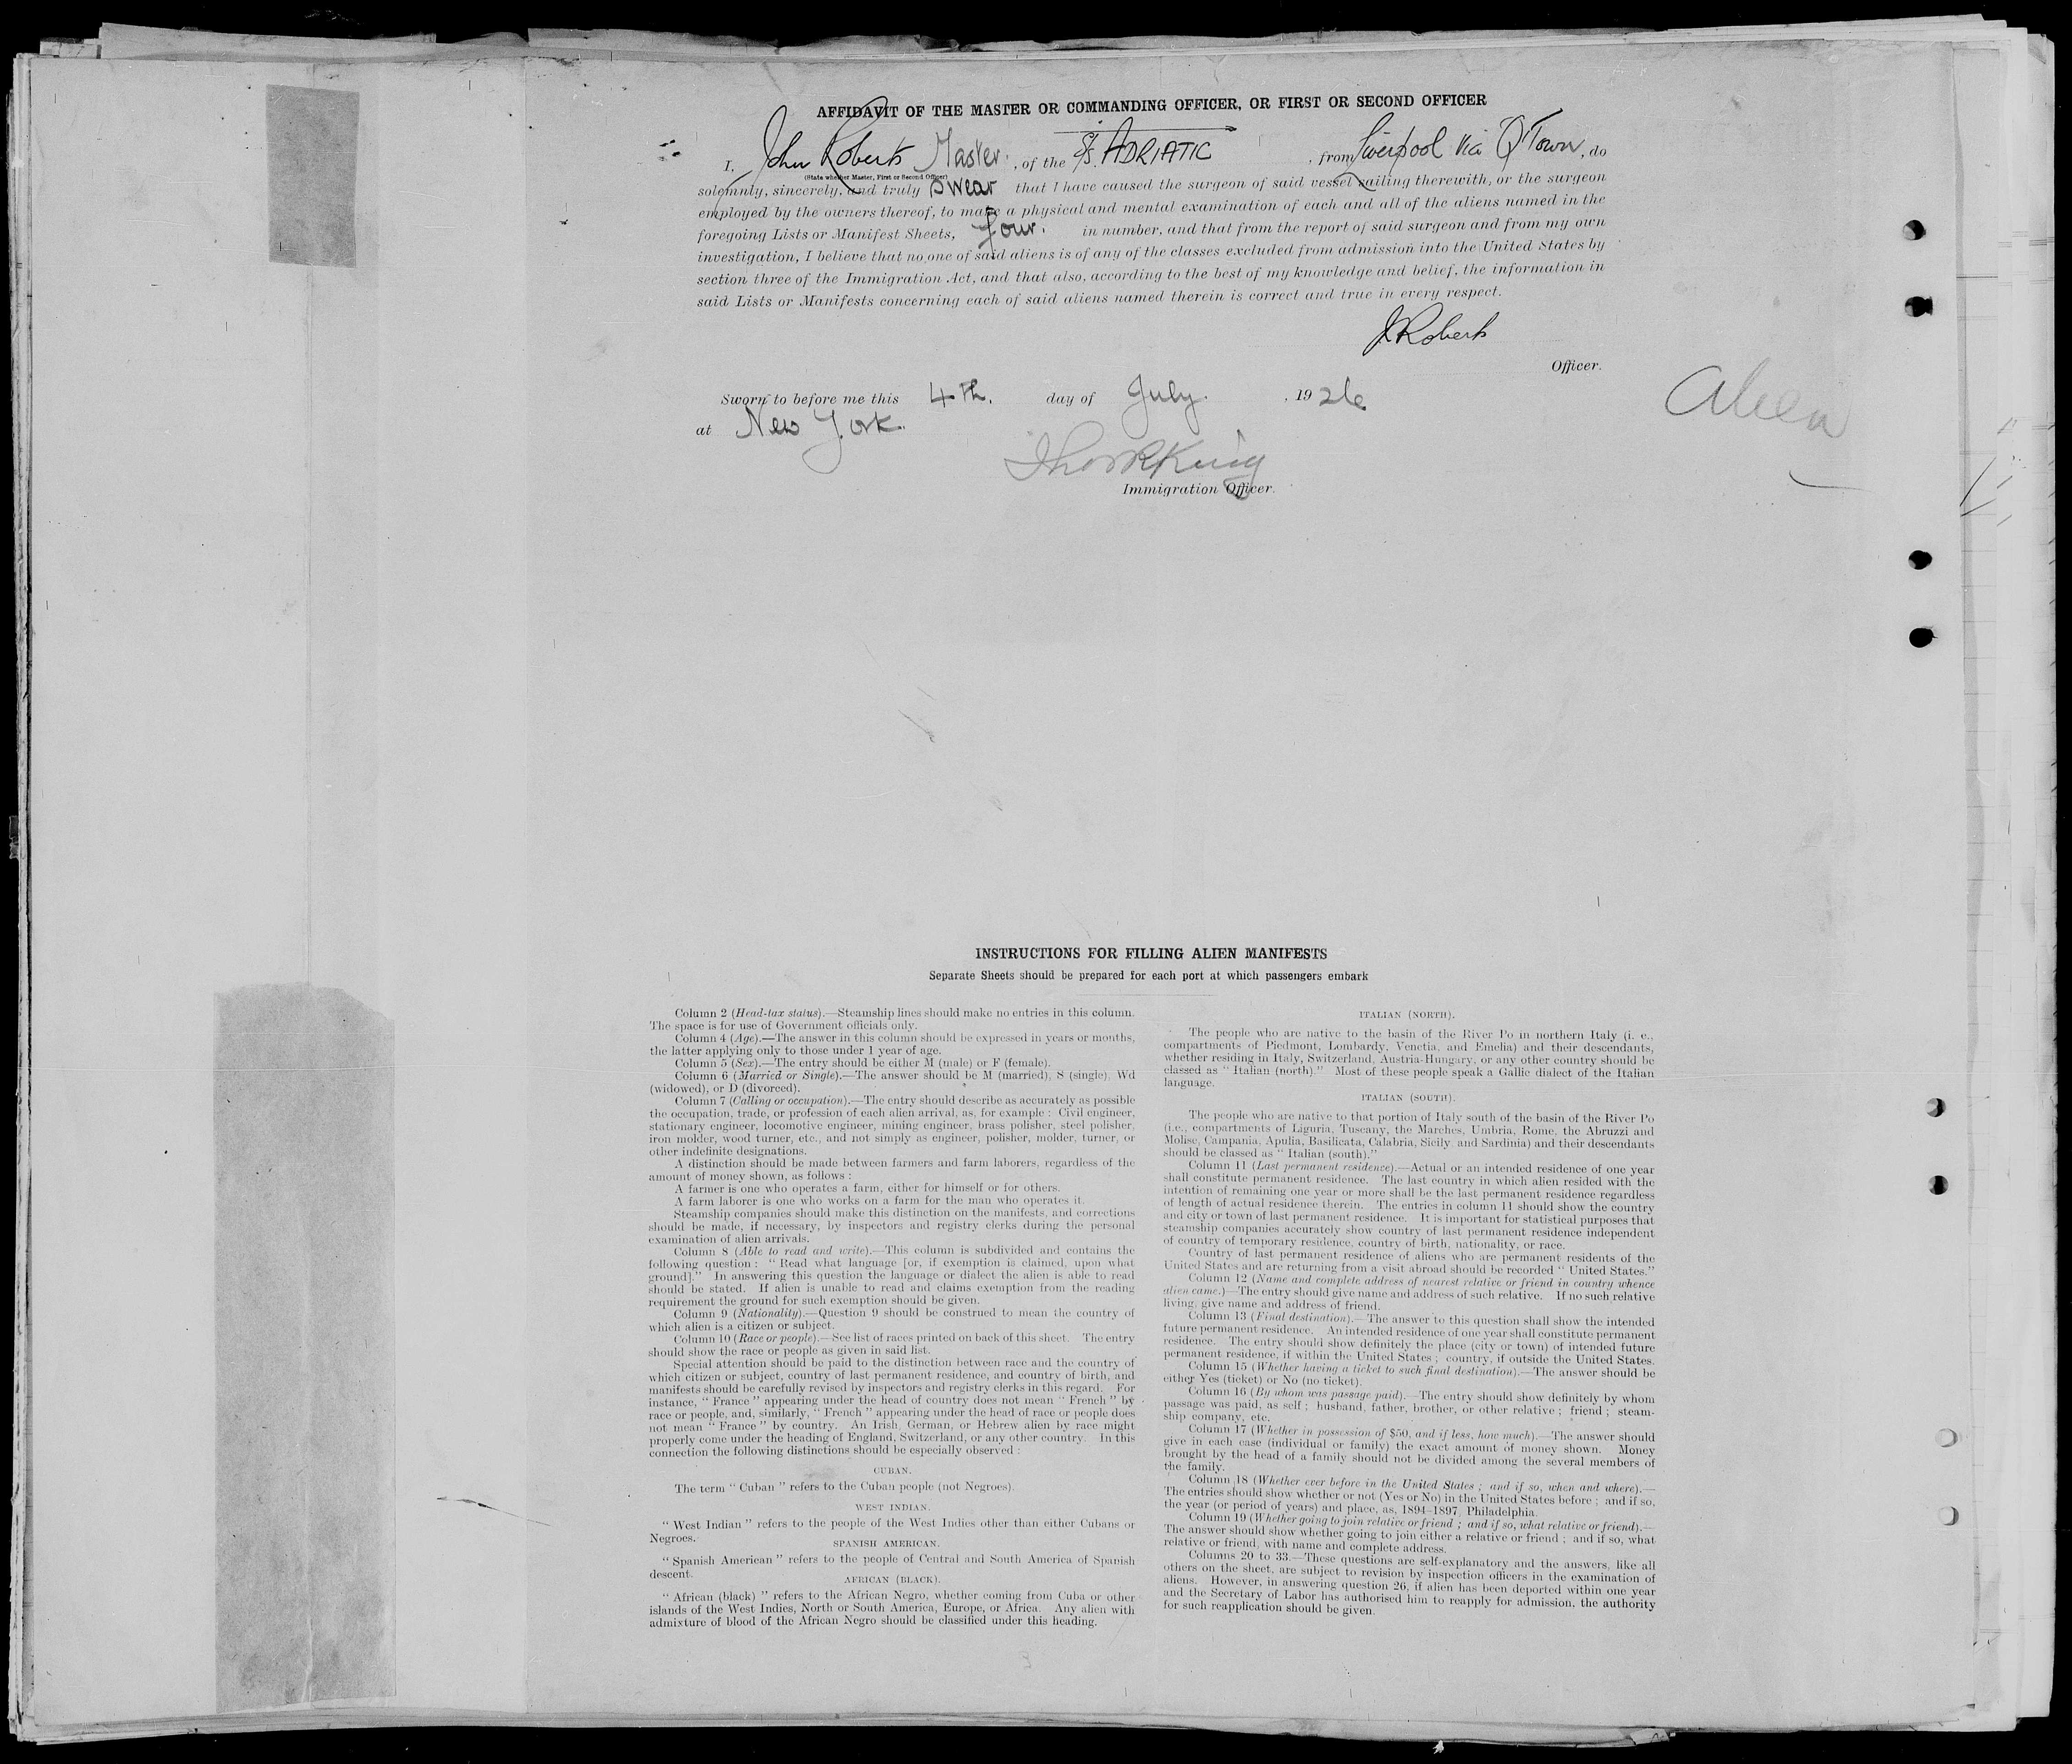 AFFIDAVIT OF THE MASTER OR COMMANDING OFFICER, OR FIRST OR SECOND OFFICER
I, John Roberts Master, of the S/S. ADRIATIC, from Liverpool Via Q'Town, do
(State whether Master, First or Second Officer)
solemnly, sincerely, and truly swear that I have caused the surgeon of said vessel sailing therewith, or the surgeon
employed by the owners thereof, to make a physical and mental examination of each and all of the aliens named in the
foregoing Lists or Manifest Sheets, four. in number, and that from the report of said surgeon and from my own
investigation, I believe that no one of said aliens is of any of the classes excluded from admission into the United States by
section three of the Immigration Act, and that also, according to the best of my knowledge and belief, the information in
said Lists or Manifests concerning each of said aliens named therein is correct and true in every respect.
J Roberts
Officer.
Sworn to before me this 4th. day of July. , 1926
at New York.
Alien
Immigration Officer.
INSTRUCTIONS FOR FILLING ALIEN MANIFESTS
Separate Sheets should be prepared for each port at which passengers embark
Column 2 (Head-tax status).—Steamship lines should make no entries in this column.
The space is for use of Government officials only.
Column 4 (Age).—The answer in this column should be expressed in years or months,
the latter applying only to those under 1 year of age.
Column 5 (Sex).—The entry should be either M (male) or F (female).
Column 6 (Married or Single).—The answer should be M (married), S (single), Wd
(widowed), or D (divorced).
Column 7 (Calling or occupation).—The entry should describe as accurately as possible
the occupation, trade, or profession of each alien arrival, as, for example : Civil engineer,
stationary engineer, locomotive engineer, mining engineer, brass polisher, steel polisher,
iron molder, wood turner, etc., and not simply as engineer, polisher, molder, turner, or
other indefinite designations.
A distinction should be made between farmers and farm laborers, regardless of the
amount of money shown, as follows :
A farmer is one who operates a farm, either for himself or for others.
A farm laborer is one who works on a farm for the man who operates it.
Steamship companies should make this distinction on the manifests, and corrections
should be made, if necessary, by inspectors and registry clerks during the personal
examination of alien arrivals.
Column 8 (Able to read and write).—This column is subdivided and contains the
following question : “ Read what language [or, if exemption is claimed, upon what
ground].” In answering this question the language or dialect the alien is able to read
should be stated. If alien is unable to read and claims exemption from the reading
requirement the ground for such exemption should be given.
Column 9 (Nationality).—Question 9 should be construed to mean the country of
which alien is a citizen or subject.
Column 10 (Race or people).—See list of races printed on back of this sheet. The entry
should show the race or people as given in said list.
Special attention should be paid to the distinction between race and the country of
which citizen or subject, country of last permanent residence, and country of birth, and
manifests should be carefully revised by inspectors and registry clerks in this regard. For
instance, “ France ” appearing under the head of country does not mean “ French ” by
race or people, and, similarly, “ French ” appearing under the head of race or people does
not mean “ France ” by country. An Irish, German, or Hebrew alien by race might
properly come under the heading of England, Switzerland, or any other country. In this
connection the following distinctions should be especially observed :
CUBAN.
The term “ Cuban ” refers to the Cuban people (not Negroes).
WEST INDIAN.
“ West Indian ” refers to the people of the West Indies other than either Cubans or
Negroes.
SPANISH AMERICAN.
“ Spanish American ” refers to the people of Central and South America of Spanish
descent.
AFRICAN (BLACK).
“ African (black) ” refers to the African Negro, whether coming from Cuba or other
islands of the West Indies, North or South America, Europe, or Africa. Any alien with
admixture of blood of the African Negro should be classified under this heading.
ITALIAN (NORTH).
The people who are native to the basin of the River Po in northern Italy (i. e.,
compartments of Piedmont, Lombardy, Venetia, and Emelia) and their descendants,
whether residing in Italy, Switzerland, Austria-Hungary, or any other country should be
classed as “ Italian (north).” Most of these people speak a Gallic dialect of the Italian
language.
ITALIAN (SOUTH).
The people who are native to that portion of Italy south of the basin of the River Po
(i.e., compartments of Liguria, Tuscany, the Marches, Umbria, Rome, the Abruzzi and
Molise, Campania, Apulia, Basilicata, Calabria, Sicily, and Sardinia) and their descendants
should be classed as “ Italian (south).”
Column 11 (Last permanent residence).—Actual or an intended residence of one year
shall constitute permanent residence. The last country in which alien resided with the
intention of remaining one year or more shall be the last permanent residence regardless
of length of actual residence therein. The entries in column 11 should show the country
and city or town of last permanent residence. It is important for statistical purposes that
steamship companies accurately show country of last permanent residence independent
of country of temporary residence, country of birth, nationality, or race.
Country of last permanent residence of aliens who are permanent residents of the
United States and are returning from a visit abroad should be recorded “ United States.”
Column 12 (Name and complete address of nearest relative or friend in country whence
alien came.)—The entry should give name and address of such relative. If no such relative
living, give name and address of friend.
Column 13 (Final destination).—The answer to this question shall show the intended
future permanent residence. An intended residence of one year shall constitute permanent
residence. The entry should show definitely the place (city or town) of intended future
permanent residence, if within the United States ; country, if outside the United States.
Column 15 (Whether having a ticket to such final destination).—The answer should be
either Yes (ticket) or No (no ticket).
Column 16 (By whom was passage paid).—The entry should show definitely by whom
passage was paid, as self ; husband, father, brother, or other relative ; friend ; steam-
ship company, etc.
Column 17 (Whether in possession of $50, and if less, how much).—The answer should
give in each case (individual or family) the exact amount of money shown. Money
brought by the head of a family should not be divided among the several members of
the family.
Column 18 (Whether ever before in the United States ; and if so, when and where).—
The entries should show whether or not (Yes or No) in the United States before ; and if so,
the year (or period of years) and place, as, 1894-1897, Philadelphia.
Column 19 (Whether going to join relative or friend ; and if so, what relative or friend).—
The answer should show whether going to join either a relative or friend ; and if so, what
relative or friend, with name and complete address.
Columns 20 to 33.—These questions are self-explanatory and the answers, like all
others on the sheet, are subject to revision by inspection officers in the examination of
aliens. However, in answering question 26, if alien has been deported within one year
and the Secretary of Labor has authorised him to reapply for admission, the authority
for such reapplication should be given.